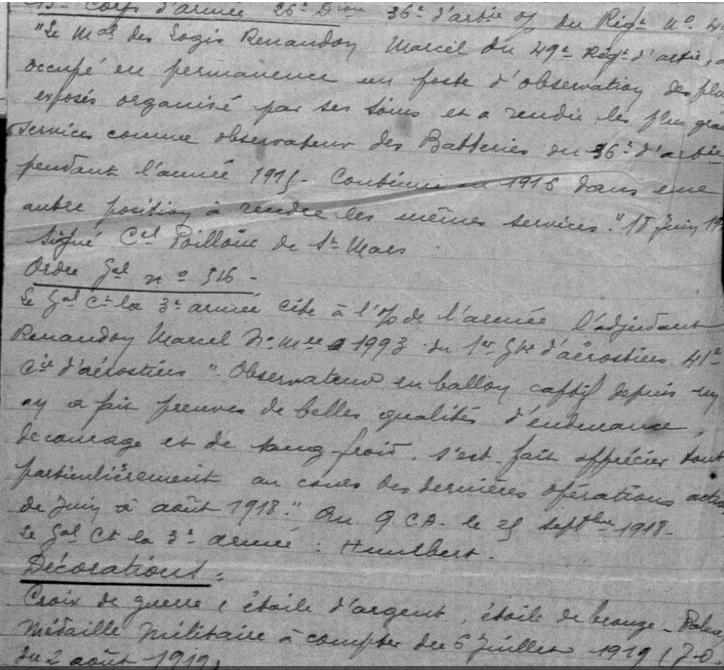 13e Corps d'armée 26e Dion 36e d'artie o/ du Régt no 4
"Le Mal des Logis Renaudon Marcel du 49e Régt d'artie, a
occupé en permanence un poste d'observation des plus
exposés organisé par ses soins et a rendu les plus gran
services comme observateur des Batteries du 36e d'artie
pendant l'année 1915. Continue en 1916 dans une
autre position à rendre les mêmes services." 18 juin 19
Signé Cel Poilloüe de St Mars
Ordre Gal no 516 -
Le Gal Ct la 3e armée cite à l'o/ de l'armée l'adjudant
Renaudon Marcel No Mle 1993 du 1er Gpe d'aérostiers 41e
Cie d'aérostiers ". Observateur en ballon captif depuis un
an a fait preuves de belles qualités d'endurance,
de courage et de sang froid, s'est fait apprécier tout
particulièrement au cours des dernières opérations
de juin à août 1918." Au Q.G.A. le 25 septbre 1918-
Le Gal Ct la 3e armée : Humbert.
Décorations :
Croix de guerre, étoile d'argent, étoile de bronze - Palme
Médaille Militaire à compter du 6 juillet 1919 (J.O.
du 2 août 1919,